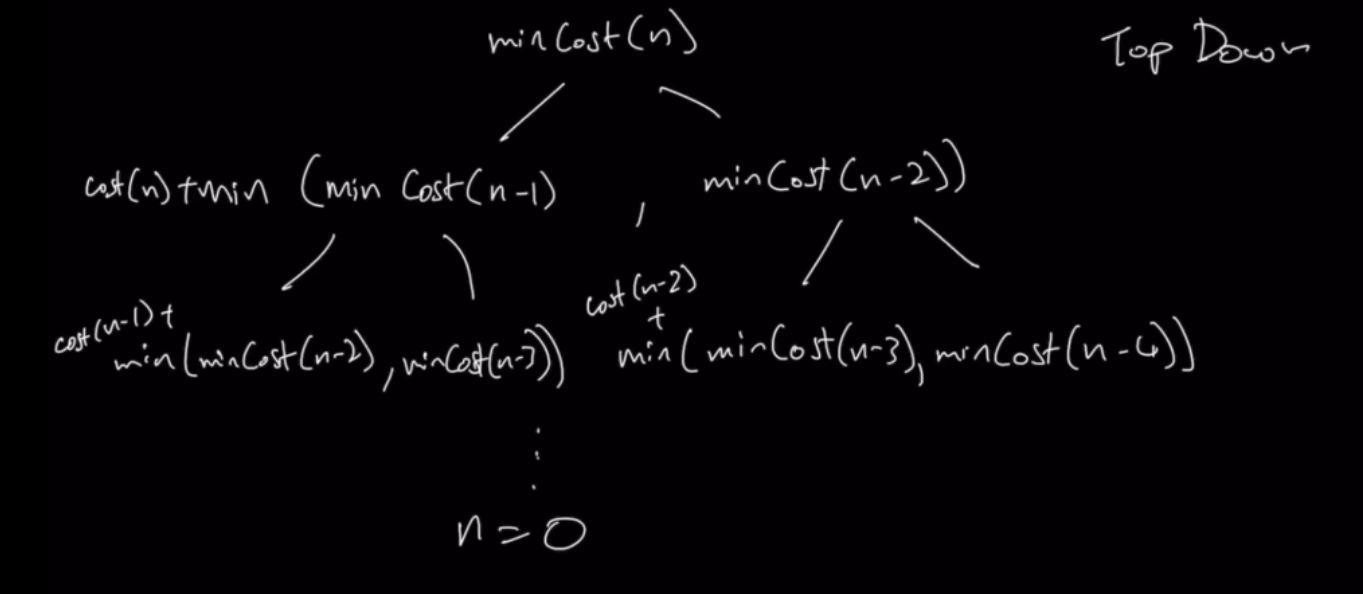 minCost(n)
Top Down
cost(n)+min (min Cost(n-1) , minCost(n-2))
cost(n-1)+ min(minCost(n-2), minCost(n-3))
cost(n-2) + min(minCost(n-3), minCost(n-4))
n=0